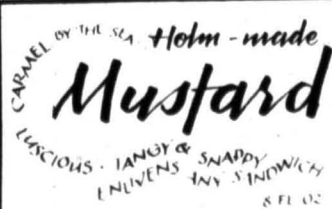 CARMEL BY THE SEA
Holm-made
Mustard
LUSCIOUS · TANGY & SNAPPY
ENLIVENS ANY SANDWICH
8 FL OZ